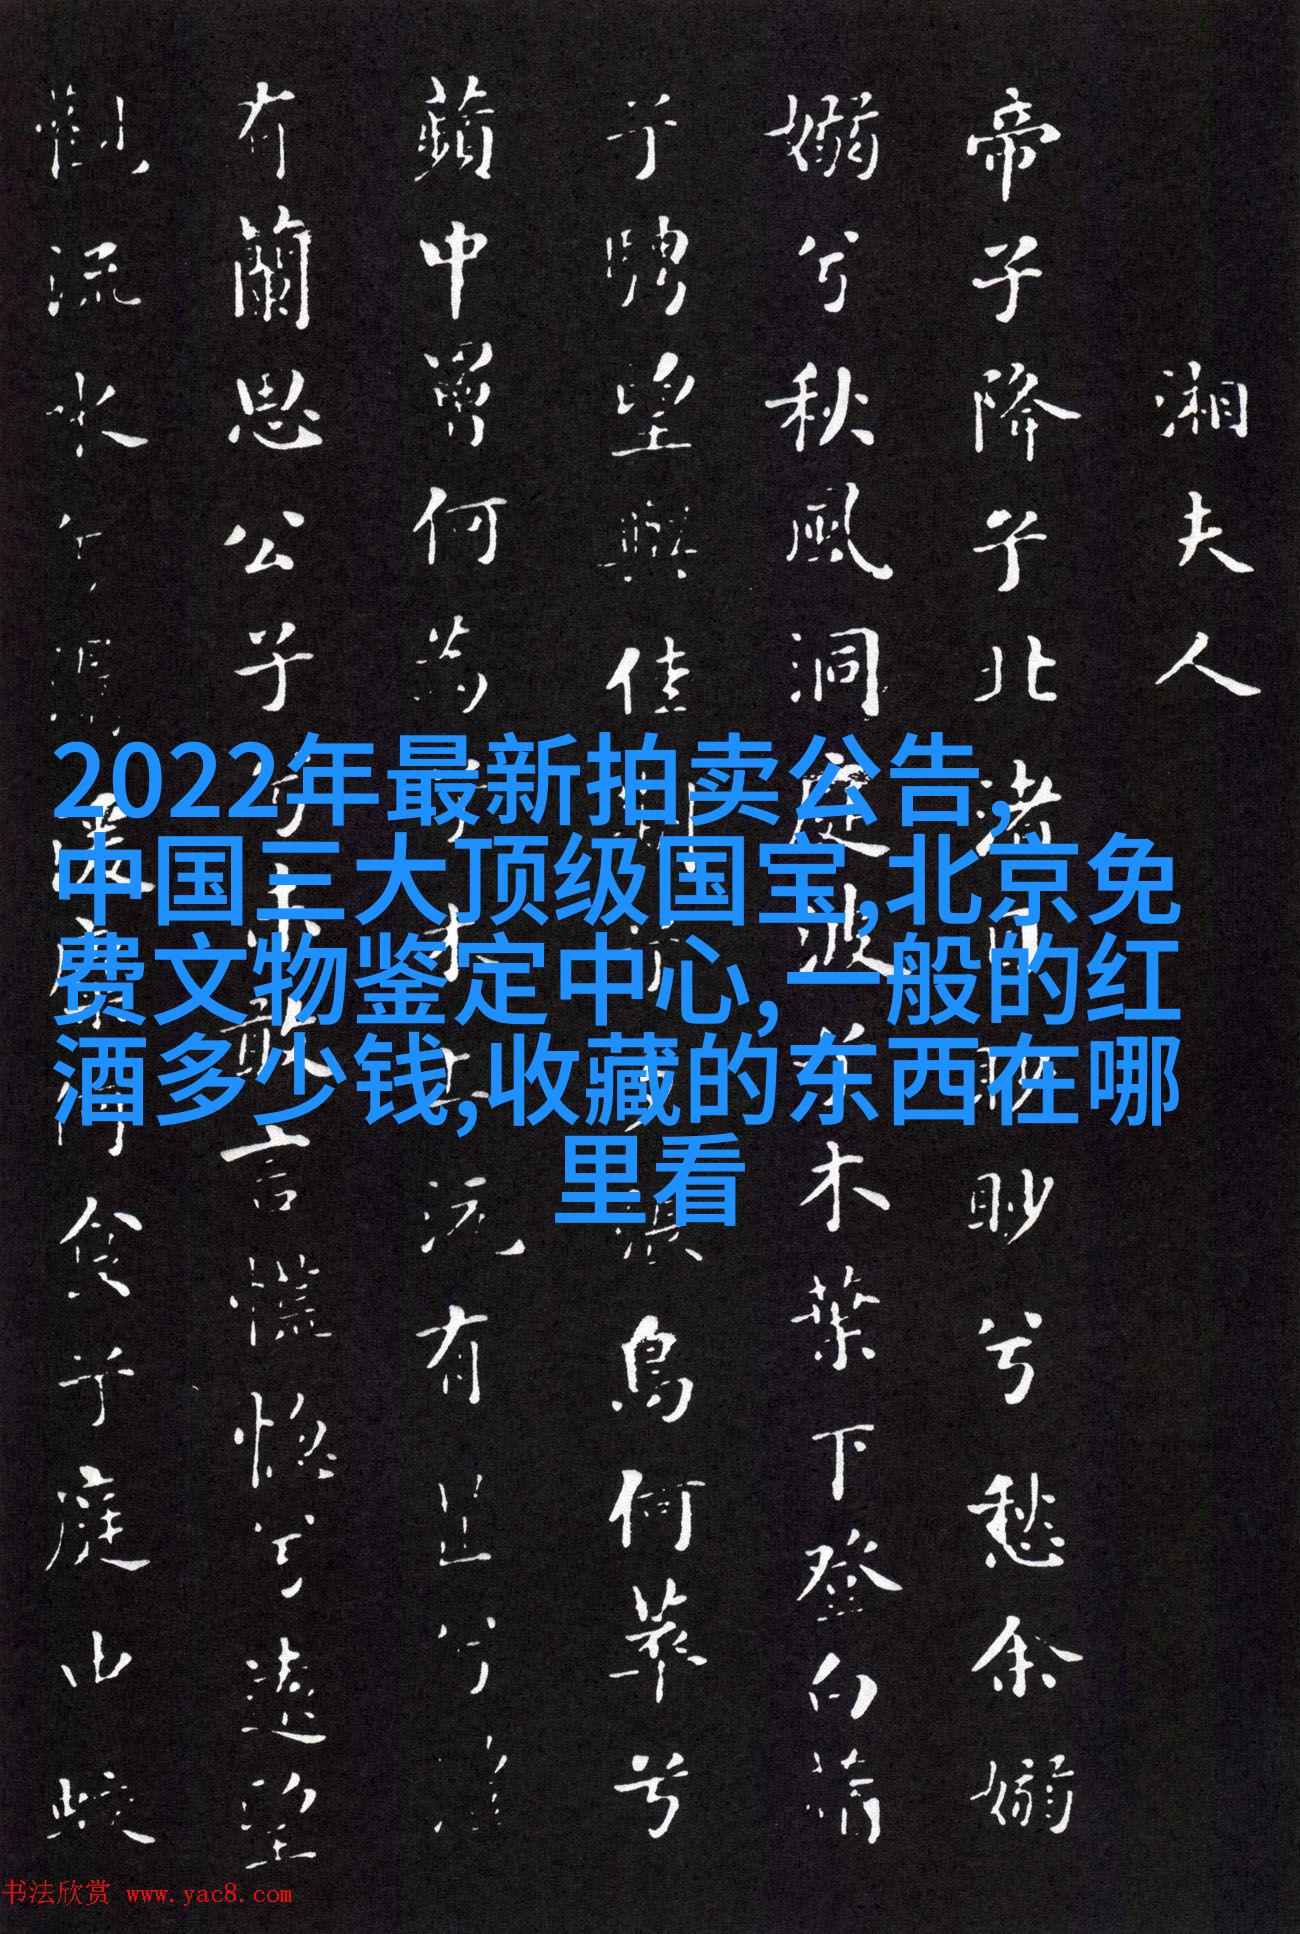 湘夫人
帝子降兮北渚目眇眇兮愁余嫋
嫋兮秋風洞庭波兮木葉下登白薠
兮騁望與佳期兮夕張鳥何萃兮
蘋中罾何為兮木上沅有芷兮澧
有蘭思公子兮未敢言慌惚兮遠望
觀流水兮潺湲麋何食兮庭山蛟
2022年最新拍卖公告,
中国三大顶级国宝,北京免
费文物鉴定中心,一般的红
酒多少钱,收藏的东西在哪
里看
书法欣赏 www.yac8.com